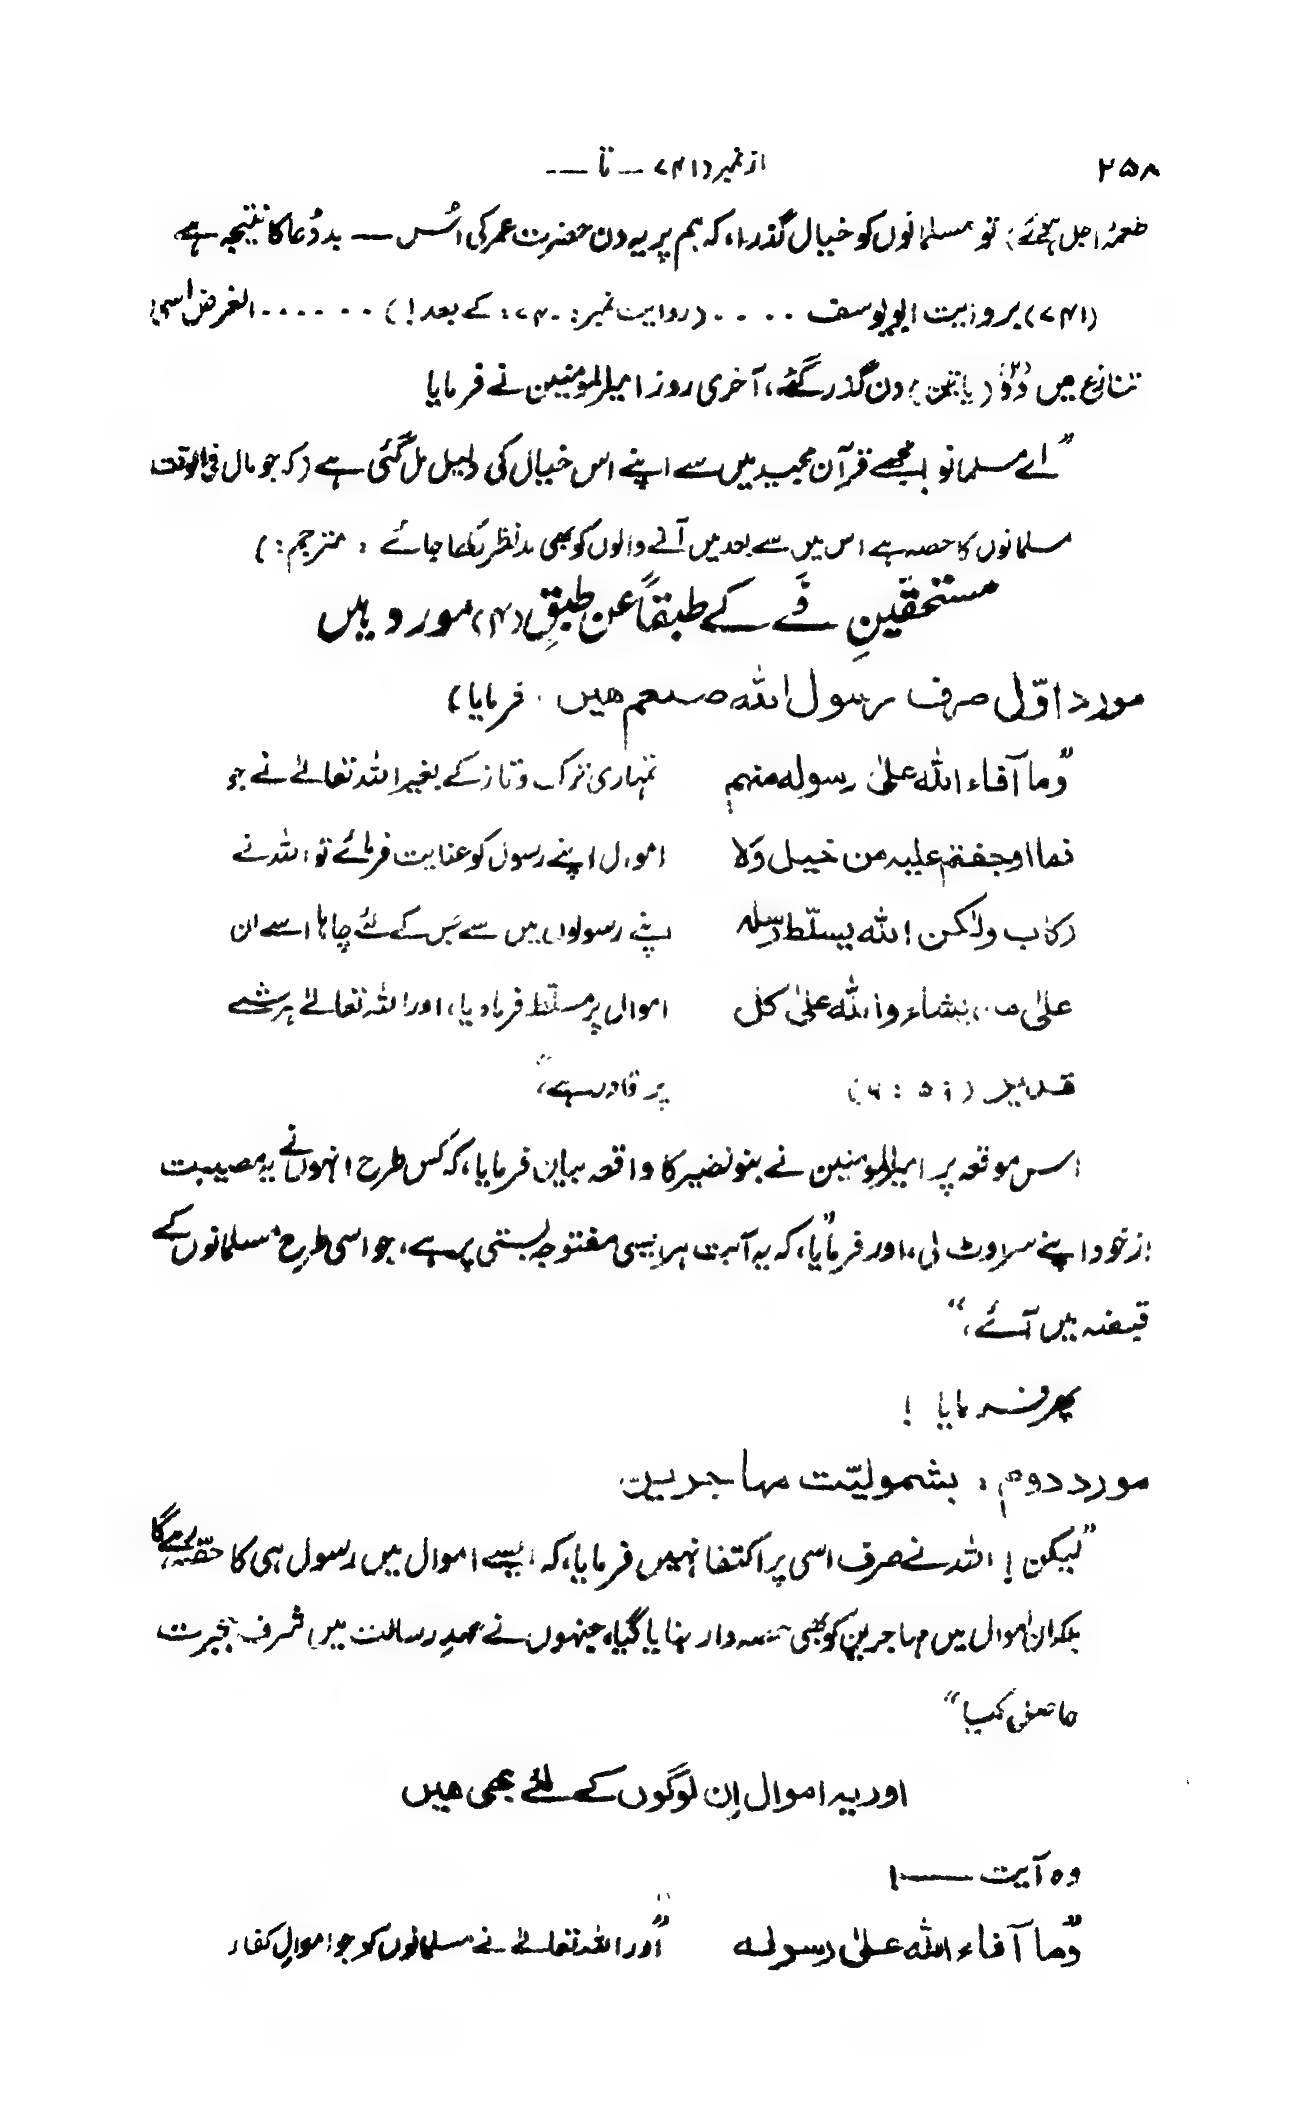 ۲۵۸ از نمبر (۷۴۱ — تا — --
طعمۂ اجل ہوگئے؛ تو مسلمانوں کو خیال گذرا، کہ ہم پر یہ دن حضرت عمر کی اُس — بددُعا کا نتیجہ ہے
(۷۴۱) بروایت ابویوسف ۔۔۔۔ (روایت نمبر: ۷۴۰: کے بعد!) ۔۔۔۔۔۔ الغرض اسی
تنازع میں دوؔ (یا تین) دن گذر گئے، آخری روز امیرالمومنین نے فرمایا
”اے مسلمانو! مجھے قرآن مجید میں سے اپنے اس خیال کی دلیل مل گئی ہے (کہ جو مال فی الوقت
مسلمانوں کا حصہ ہے اس میں سے بعد میں آنے والوں کو بھی مدنظر رکھا جائے : مترجم:)
مستحقّینِ فَے کے طبقاً عن طبقٍ (۴) مورد ہیں
مورد اوّل صرف رسول اللہ صلعم ھیں ۔ فرمایا)
”وما آفاء اللہ علیٰ رسولہ منہم تمہاری ترک و تاز کے بغیر اللہ تعالےٰ نے جو
فما اوجفتم علیہ من خیل وَلا اموال اپنے رسول کو عنایت فرمائے تو اللہ نے
رکاب ولٰکن اللہ یسلّط رسلہ اپنے رسولوں میں سے جس کے لئے چاہا اسے ان
علیٰ من یشاء واللہ علیٰ کل اموال پر مسلّط فرمادیا، اور اللہ تعالےٰ ہر شے
قدیر (۶ : ۵۹) پر قادر ہے،“
اس موقعہ پر امیرالمومنین نے بنو نضیر کا واقعہ بیان فرمایا، کہ کس طرح انہوں نے یہ مصیبت
ازخود اپنے سر اوٹ لی، اور فرمایا، ”کہ یہ آیت ہر ایسی مفتوحہ بستی پر ہے، جو اسی طرح مسلمانوں کے
قبضہ میں آئے،“
پھر فرمایا !
مورد دوم : بشمولیّت مہاجرین
”لیکن! اللہ نے صرف اسی پر اکتفا نہیں فرمایا، کہ ایسے اموال میں رسول ہی کا حصّہ رہے گا
بلکہ ان اموال میں مہاجرین کو بھی حصہ دار بنایا گیا، جنہوں نے عہدِ رسالت میں شرف ہجرت
حاصل کیا“
اور یہ اموال اِن لوگوں کے لئے بھی ھیں
وہ آیت —— !
”وما آفاء اللہ علیٰ رسولہ ”اور اللہ تعالےٰ نے مسلمانوں کو جو اموالِ کفار